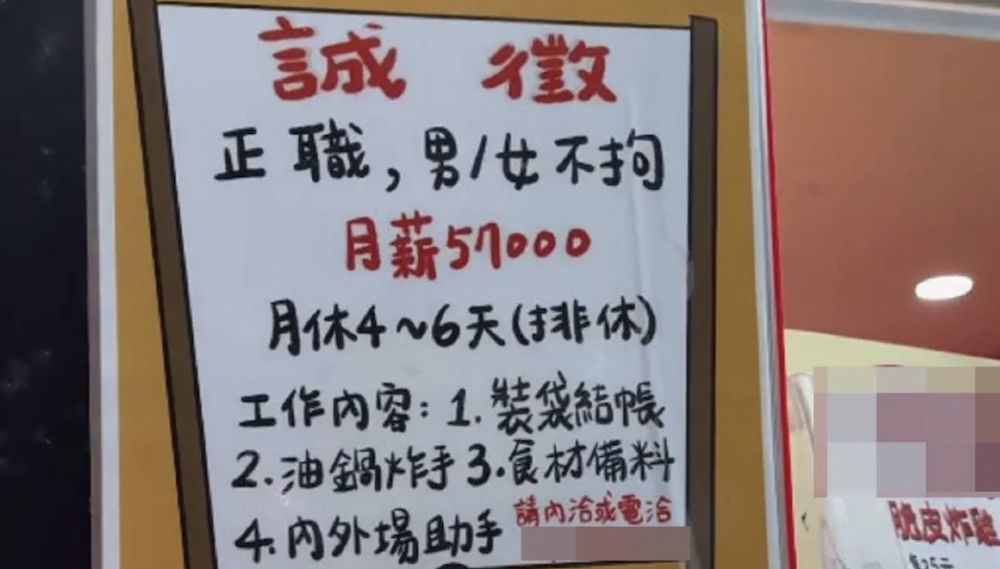 誠 徵
正職,男/女不拘
月薪57000
月休4~6天(排休)
工作內容:1.裝袋結帳
2.油鍋炸手3.食材備料
4.內外場助手
請內洽或電洽
脆皮炸雞